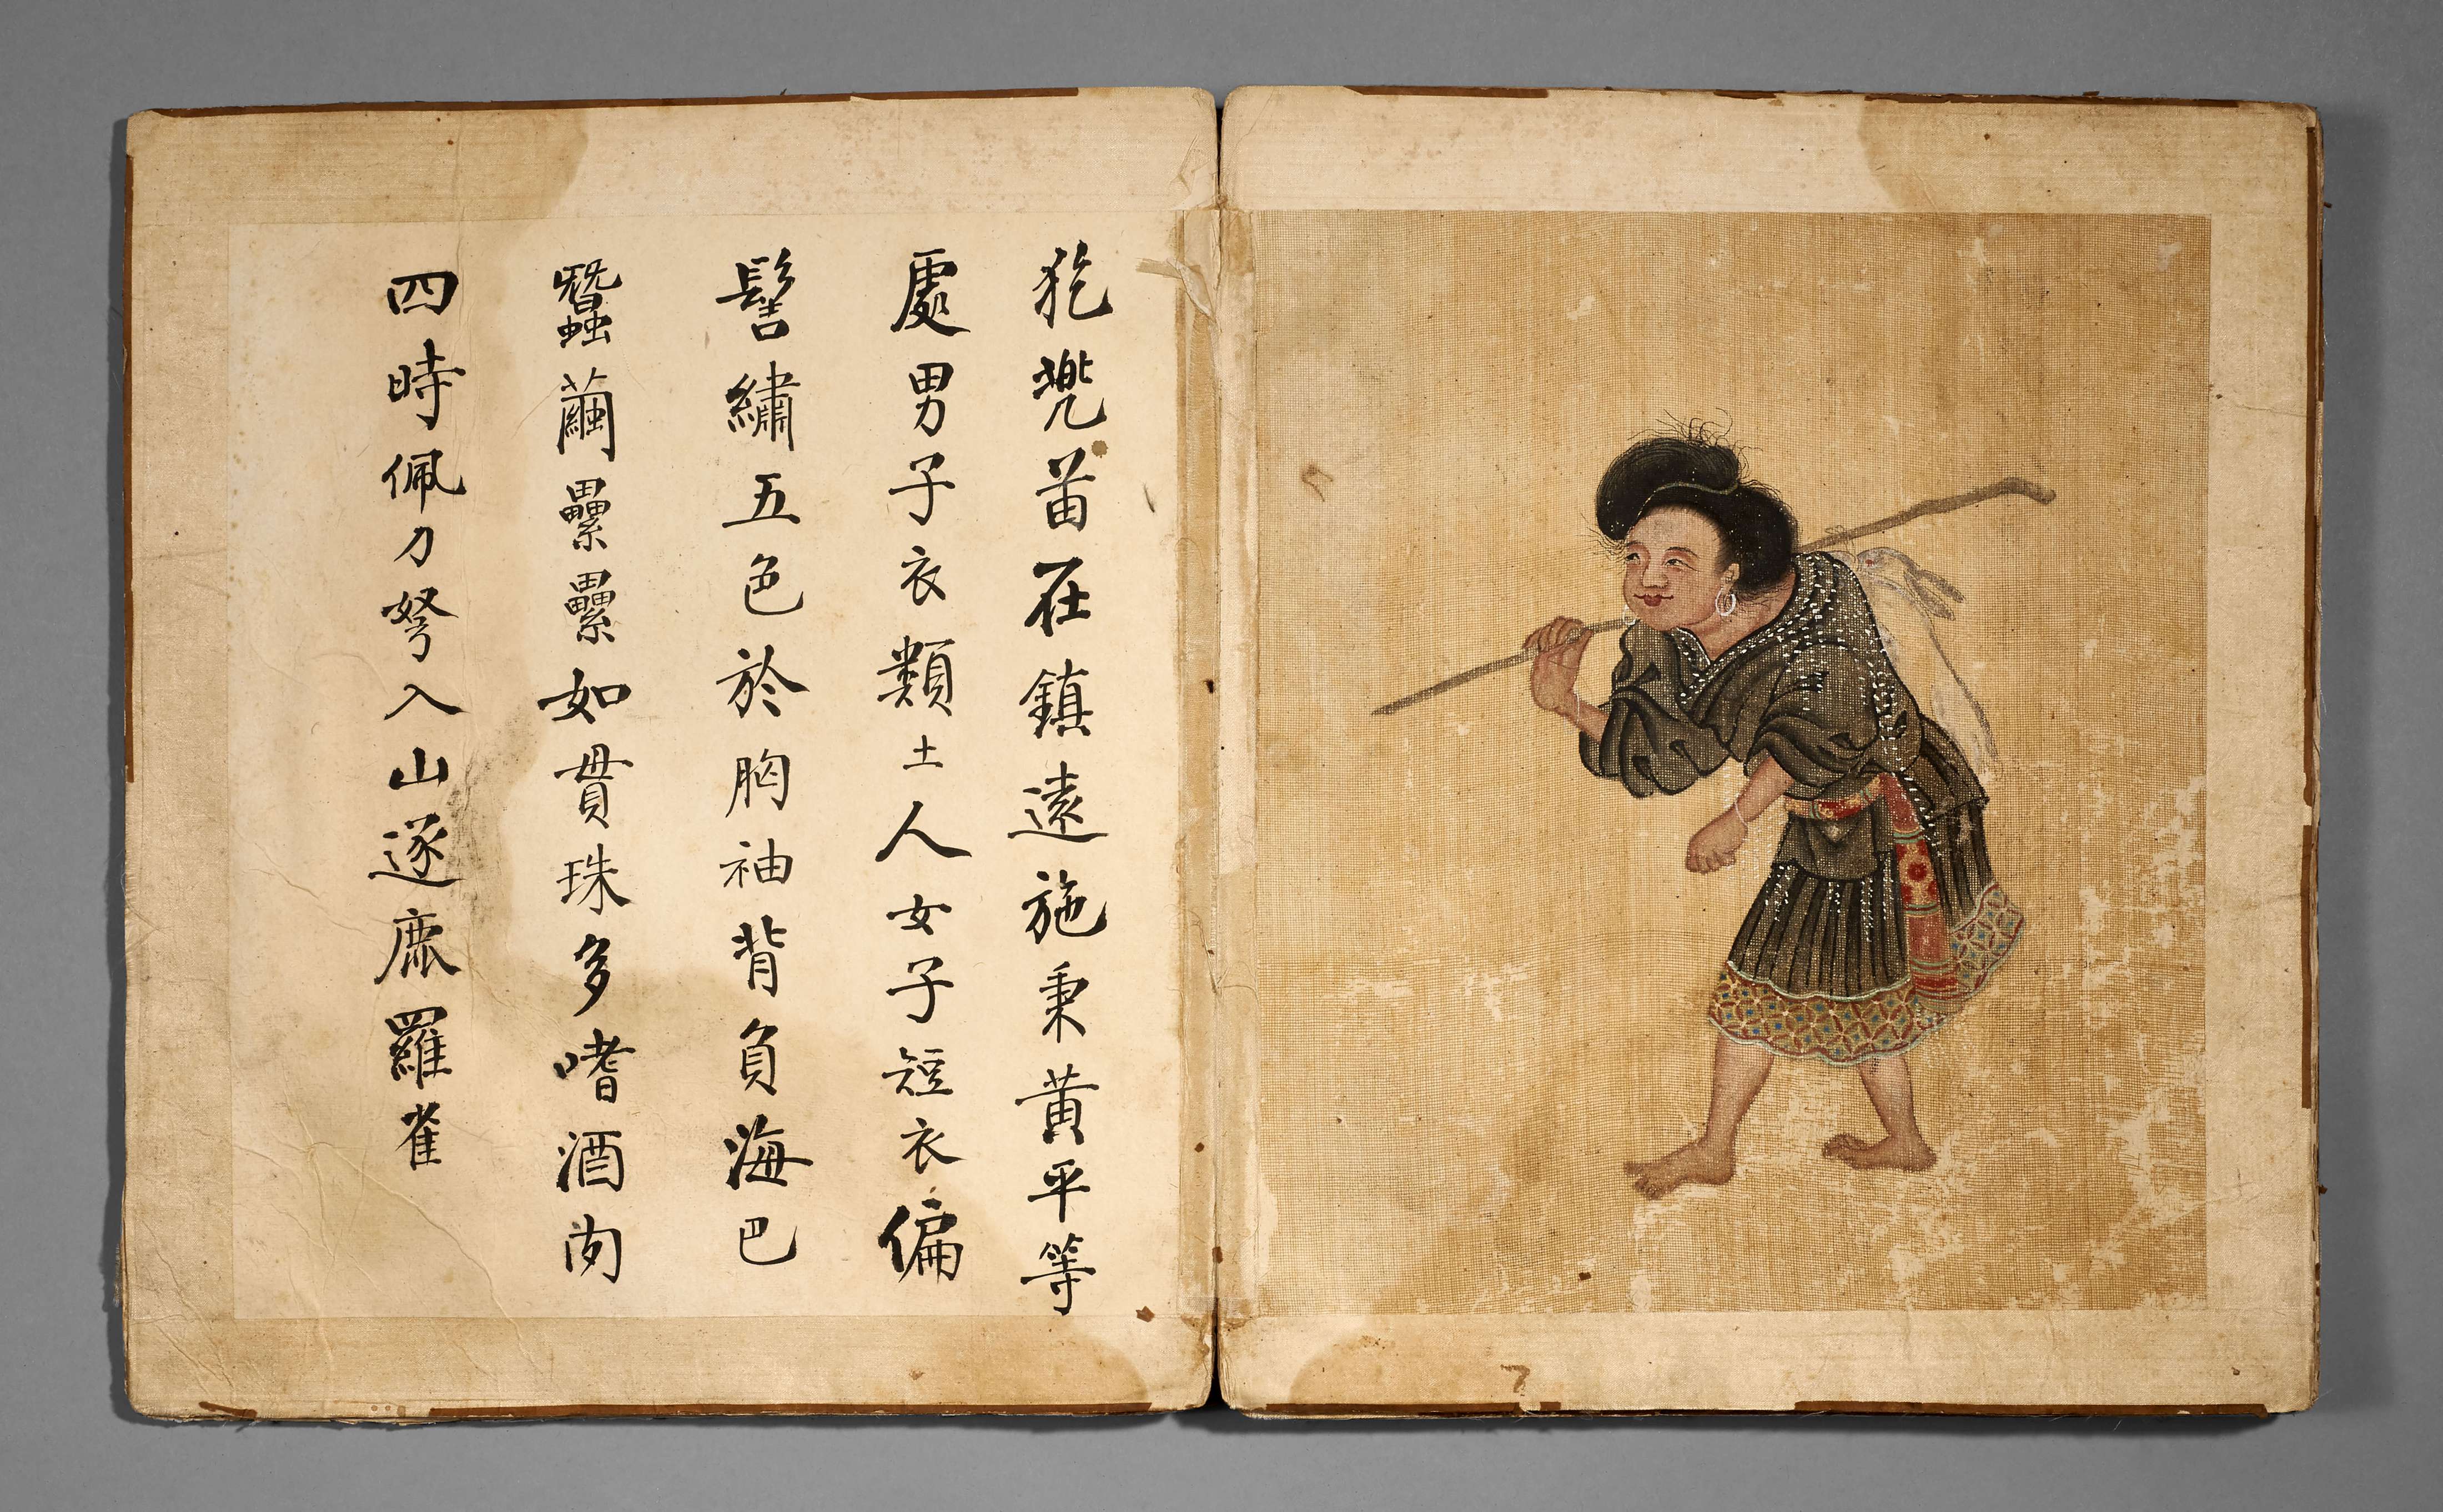 犵兠苗在鎮遠施秉黃平等
處男子衣類土人女子短衣偏
髻繡五色於胸袖背負海巴
蠶繭纍纍如貫珠多嗜酒肉
四時佩刀弩入山逐鹿羅雀